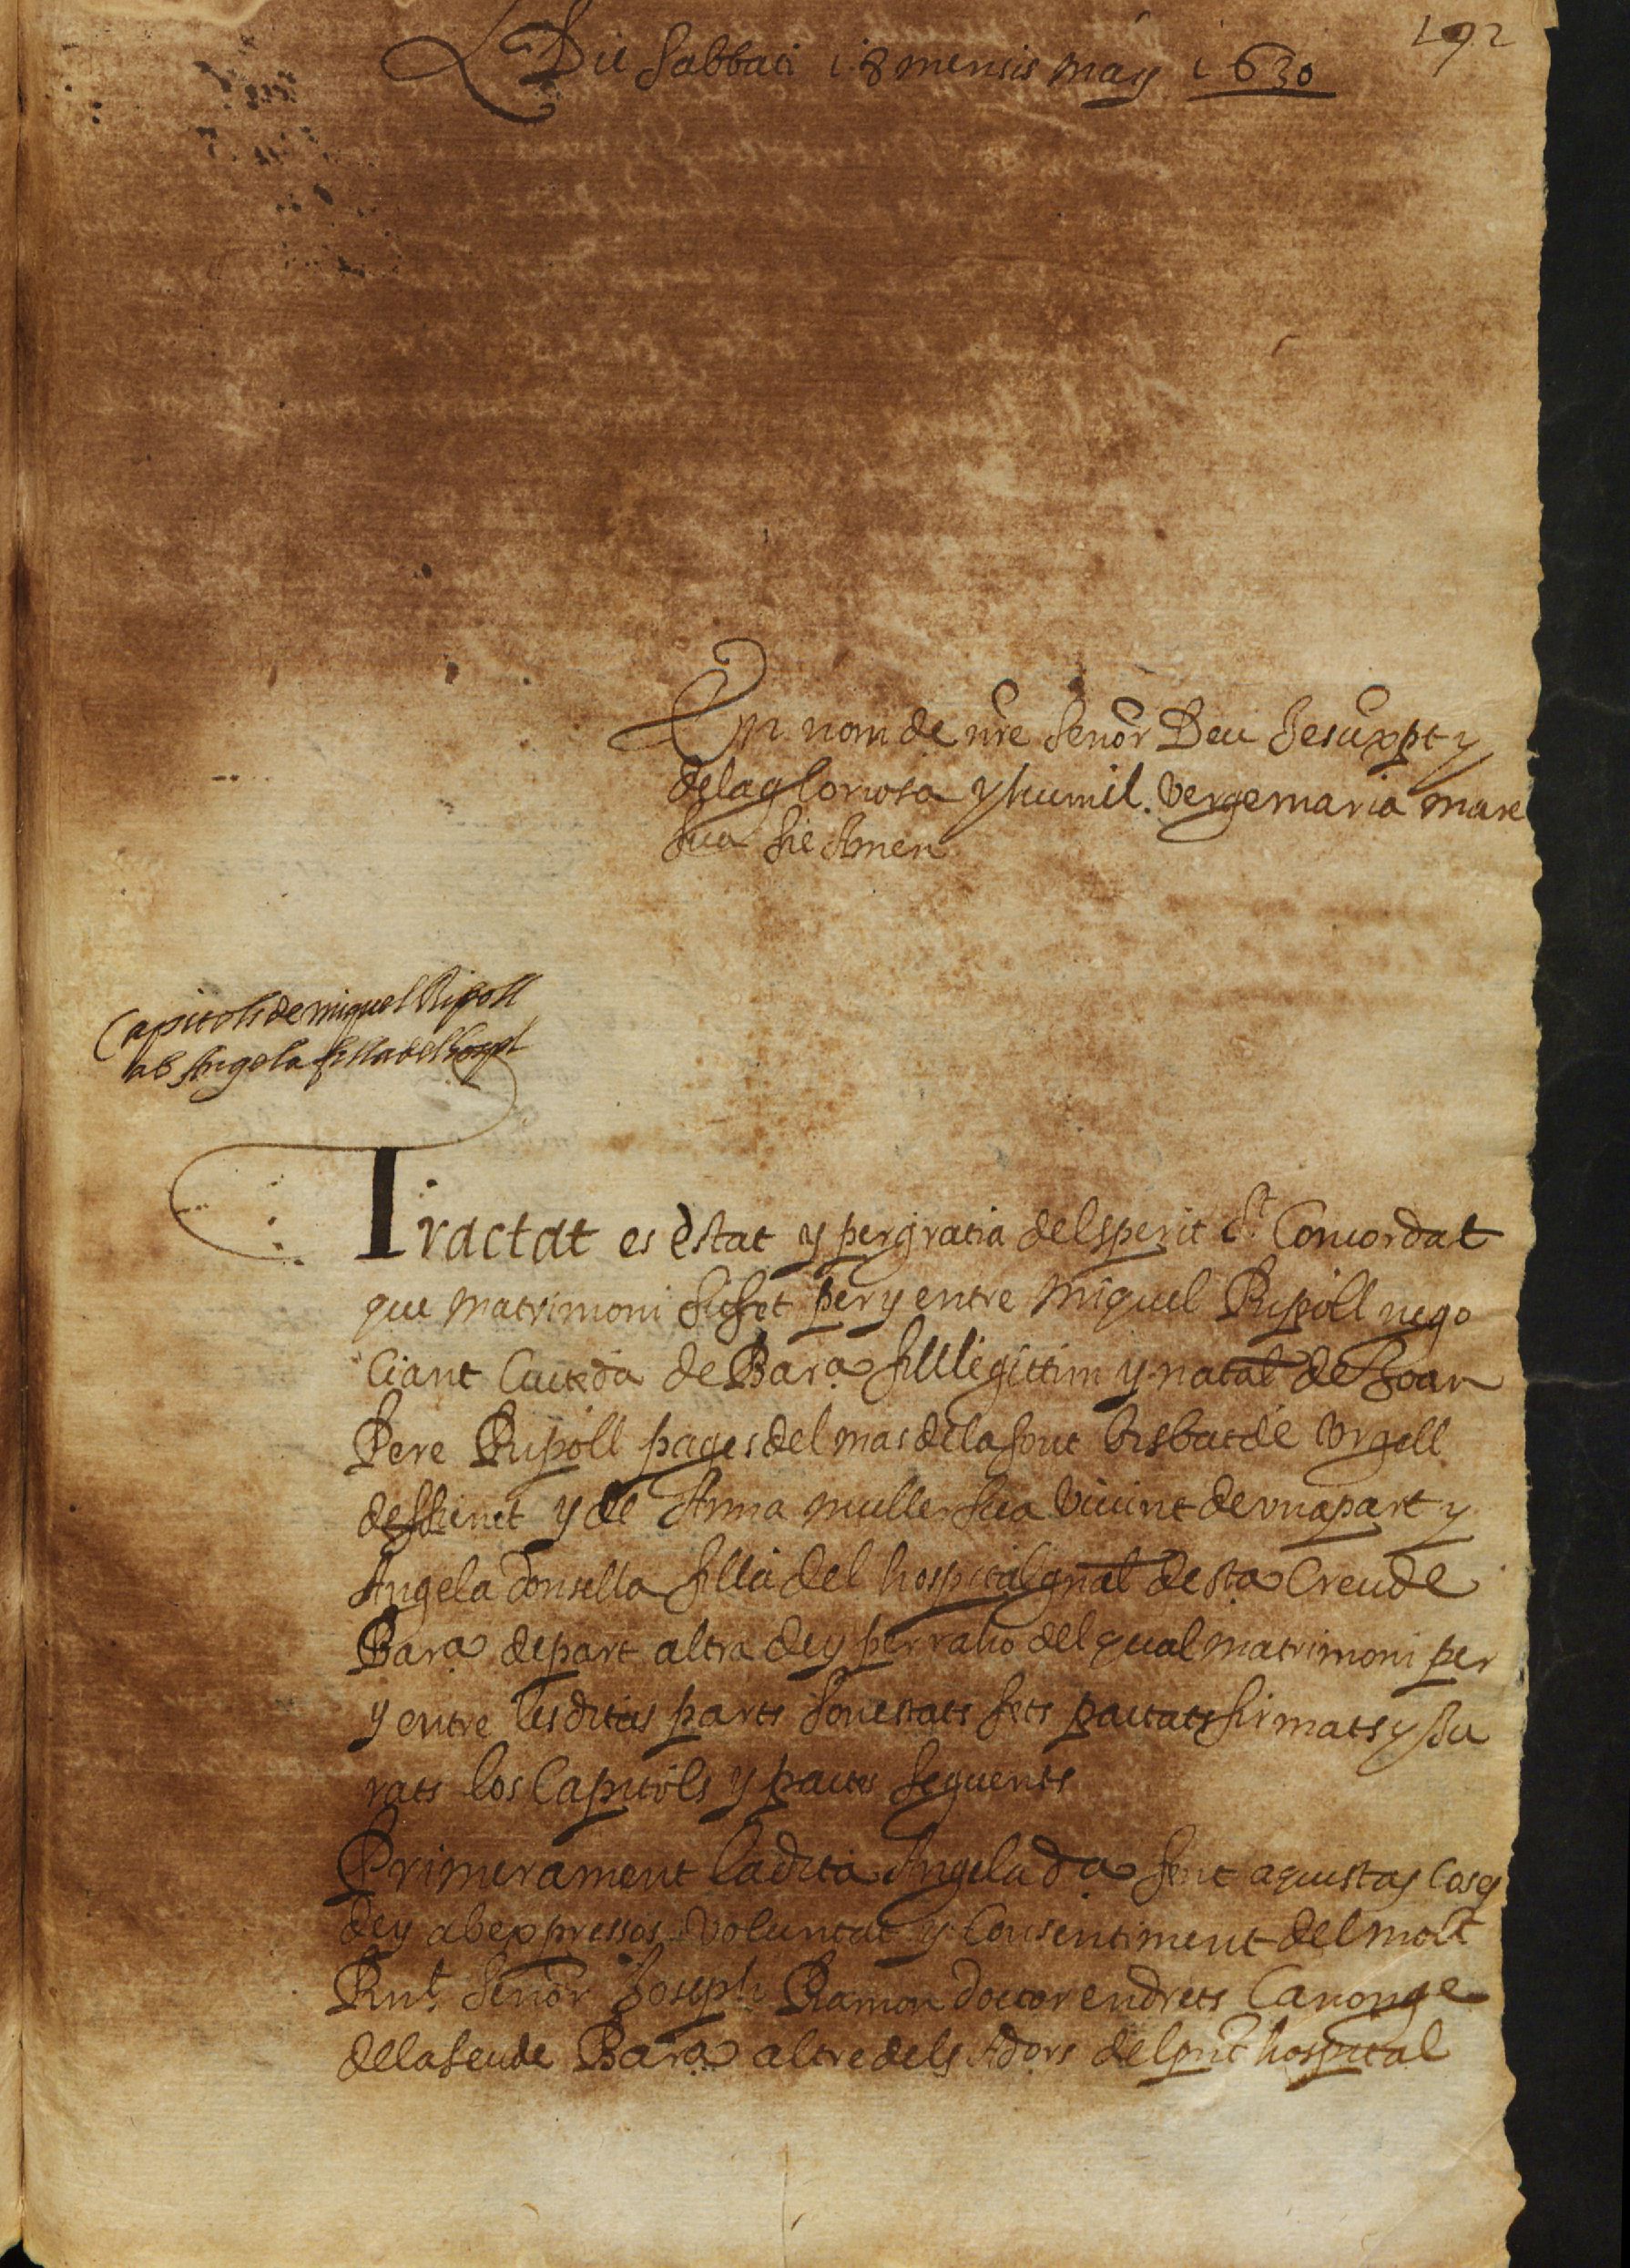 192
Die Sabbati i8 mensis maij i630
En nom de nre Señor Deu Jesuxpt y
dela gloriosa y humil verge maria mare
sua sie Amen
Capitols de miquel Ripoll
ab Angela filla del hospl
Tractat es estat y per gratia del sperit St Concordat
que matrimoni sie fet per y entre Miquel Ripoll nego
ciant Ciutedà de Bara fill llegittim y natal de Joan
Pere Ripoll pages del mas de la font bisbat de Vrgell
deffunct y de Anna muller sua vivint de vna part y
Angela donsella filla del hospital gñal de sta Creu de
Bara de part altra de y per raho del qual matrimoni per
y entre les dites parts son estats fets pactats firmats y ju
rats los Capitols y pactes seguents
Primerament la dita Angela da fent aquestas cosas
de y ab expressos voluntat y Consentiment del molt
Rnt Señor Joseph Ramon doctor en drets Canonge
de la seu de Bara altre dels Adors del pnt hospital